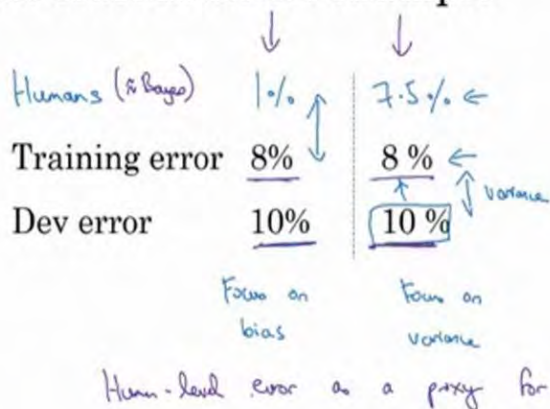 Humans (≈ Bayes) 1% 7.5%
Training error 8% 8 %
variance
Dev error 10% 10 %
Focus on Focus on
bias variance
Human-level error as a proxy for